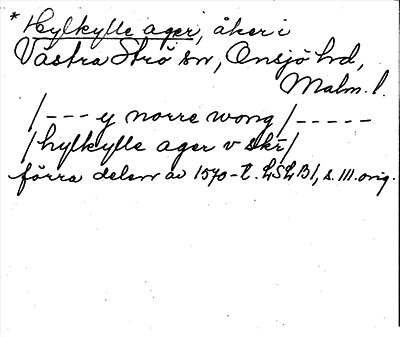 * Hylkylle ager, åker i
Västra Strö sn, Onsjö hd,
Malm. l.
/--- y norre wong /-----
/hylkylle ager v skr/
förra delen av 1570-t. LSLB1, s. 111. orig.